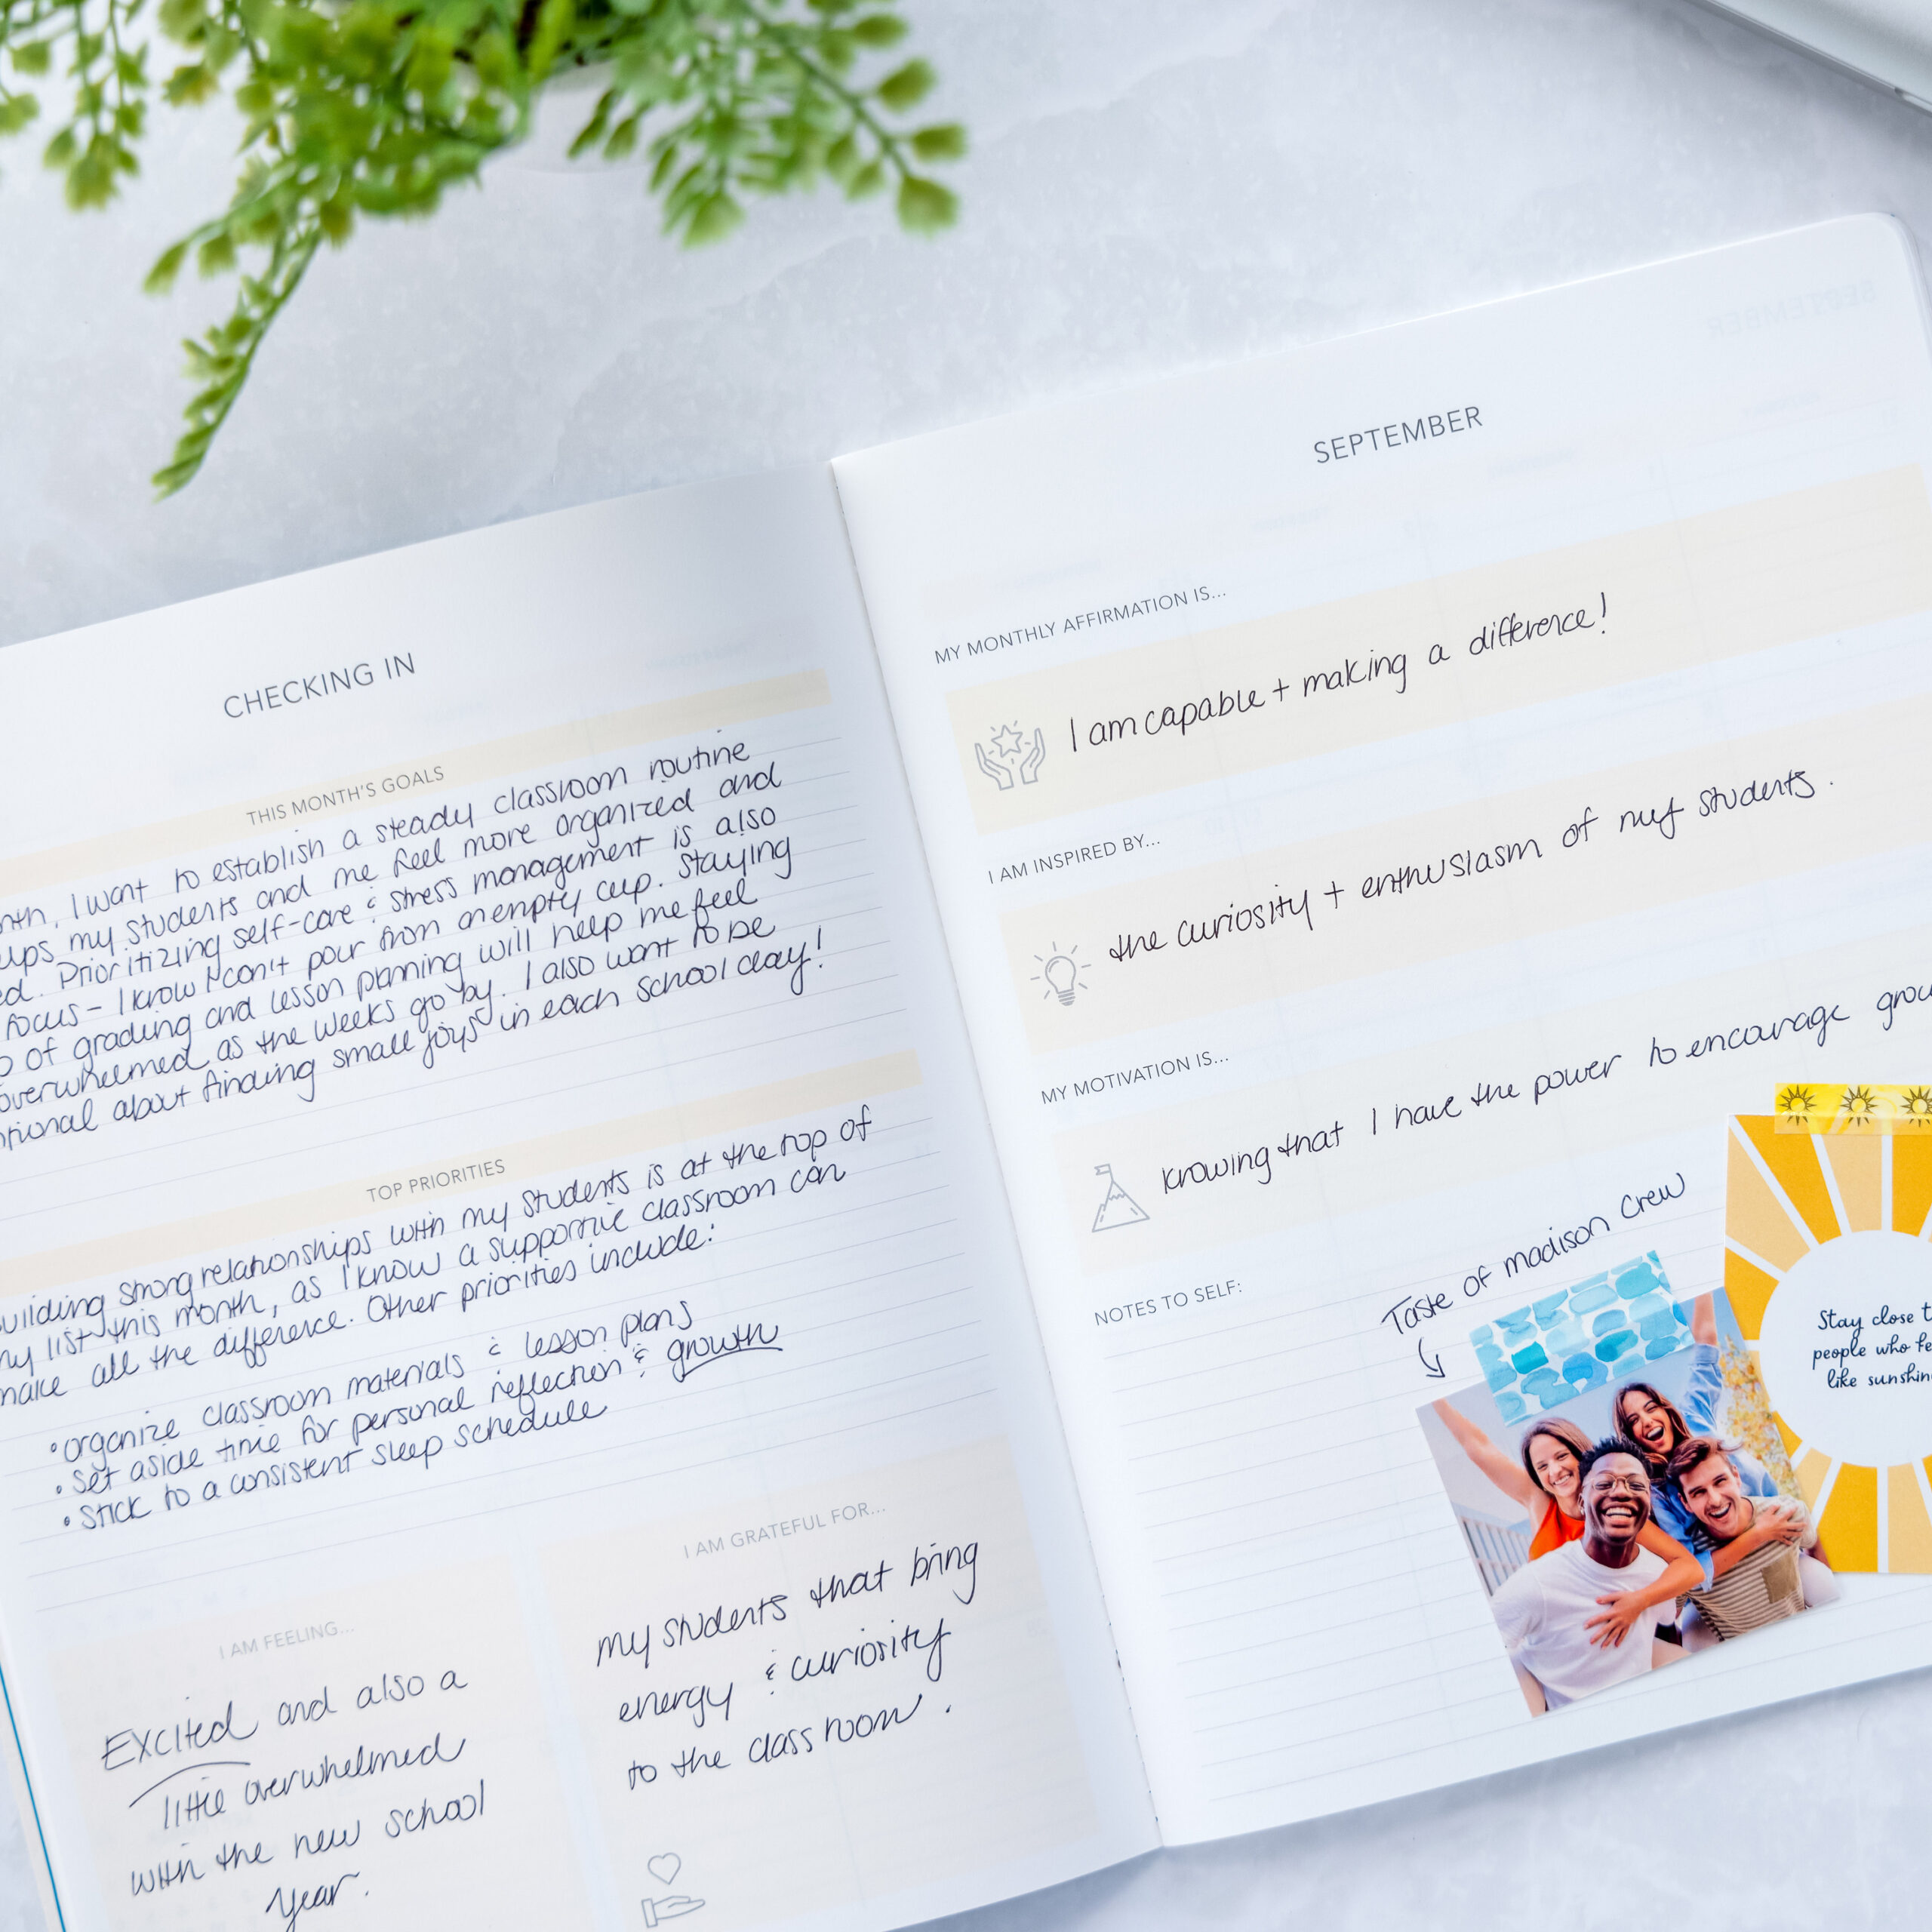 CHECKING IN
THIS MONTH'S GOALS
I want to establish a steady classroom routine
my students and me feel more organized and
Prioritizing self-care & stress management is also
focus - I know I can't pour from an empty cup. Staying
of grading and lesson planning will help me feel
overwhelmed as the weeks go by. I also want to be
about finding small joys in each school day!
TOP PRIORITIES
strong relationships with my students is at the top of
list this month, as I know a supportive classroom can
all the difference. Other priorities include:
• organize classroom materials & lesson plans
• Set aside time for personal reflection & growth
• Stick to a consistent sleep schedule
I AM FEELING...
Excited and also a
little overwhelmed
with the new school
year.
I AM GRATEFUL FOR...
my students that bring
energy & curiosity
to the classroom.
SEPTEMBER
MY MONTHLY AFFIRMATION IS...
I am capable + making a difference!
I AM INSPIRED BY...
the curiosity + enthusiasm of my students.
MY MOTIVATION IS...
knowing that I have the power to encourage
NOTES TO SELF:
Taste of madison crew
Stay close
people who
like
SEPTEMBER